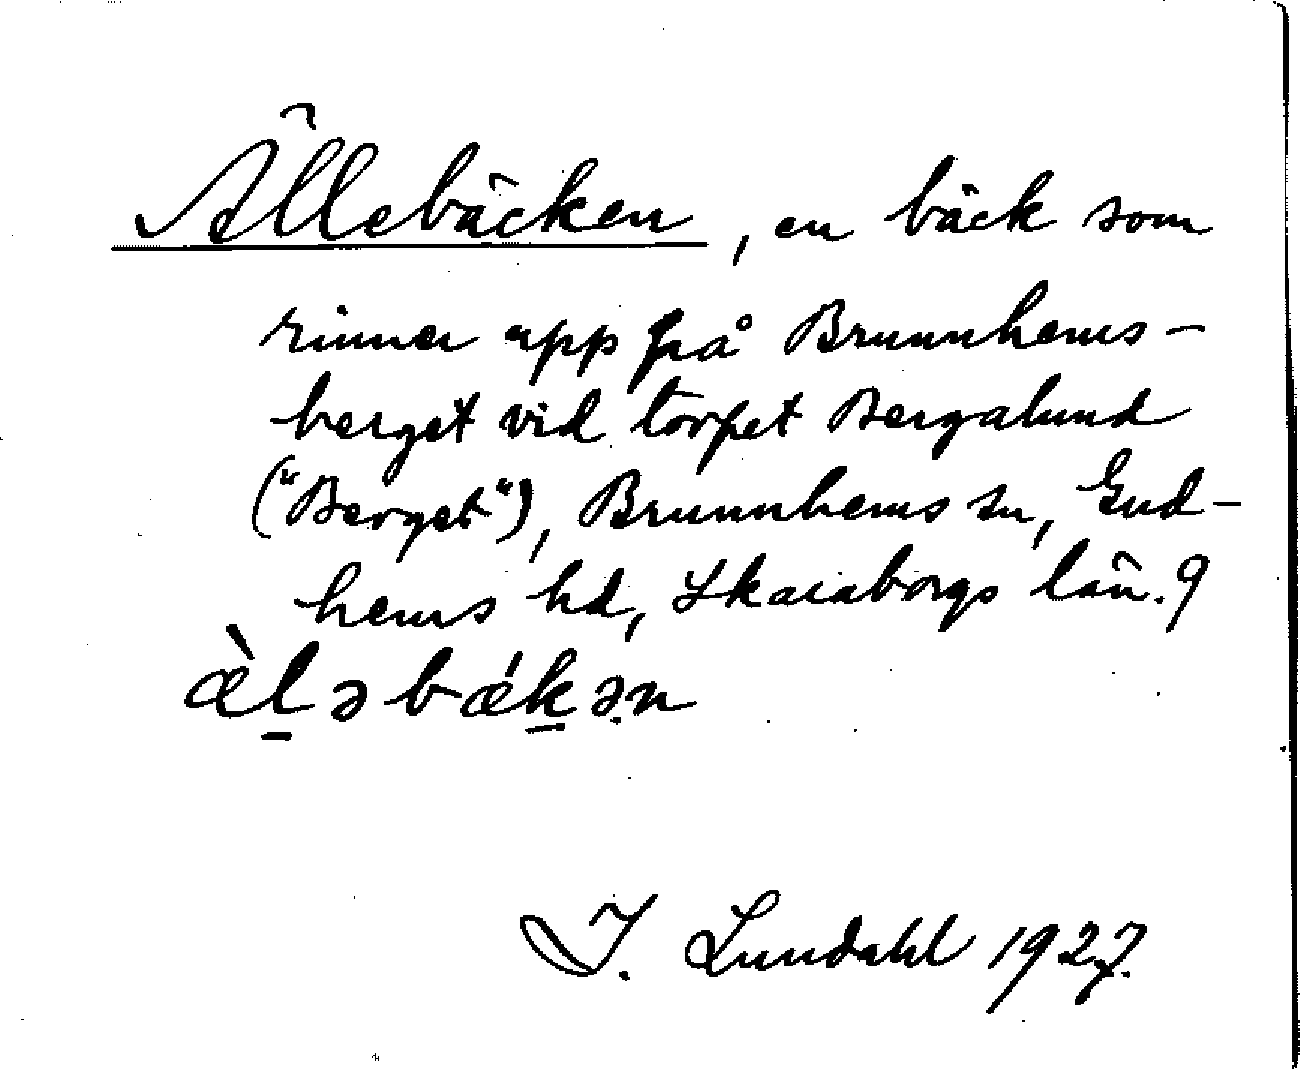 Ällebäcken, en bäck som
rinner upp från Brunnhems-
berget vid torpet Bergalund
("Berget"), Brunnhems sn, Gud-
hems hd, Skaraborgs län. 9
æ̀l̠əbǽk̠ə̣n
I. Lundahl 1927.